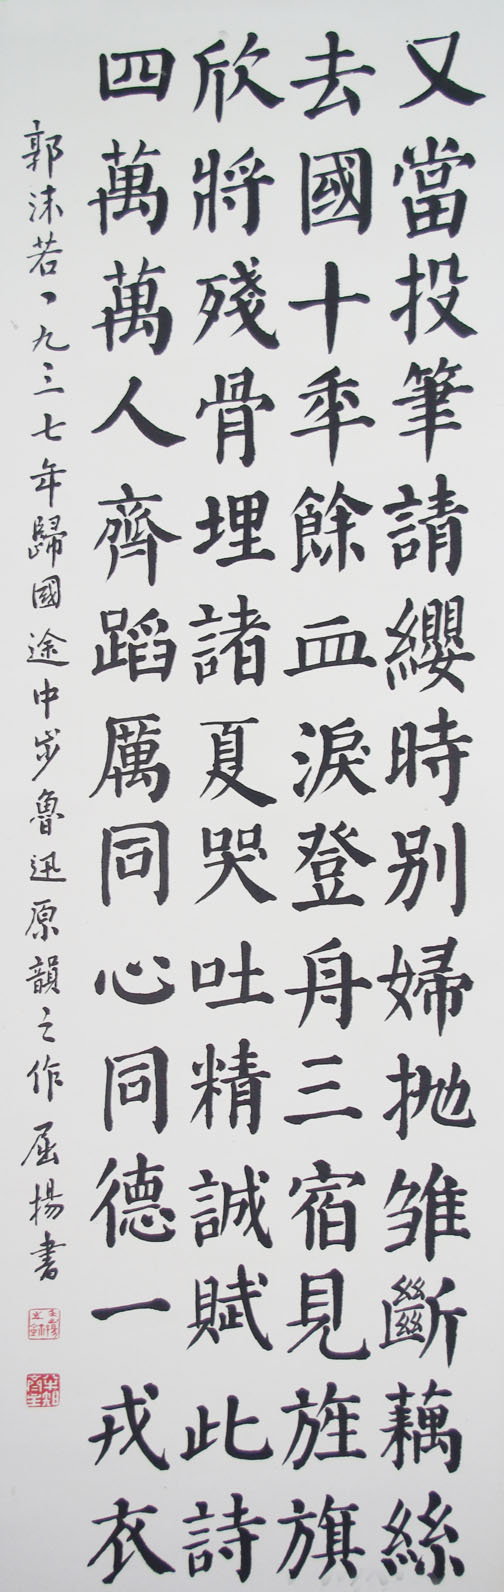 又當投筆請纓時別婦拋雏斷藕絲
去國十年餘血淚登舟三宿見旌旗
欣將殘骨埋諸夏哭吐精誠賦此詩
四萬萬人齊蹈厲同心同德一戎衣
郭沫若一九三七年歸國途中步魯迅原韻之作 屈揚書